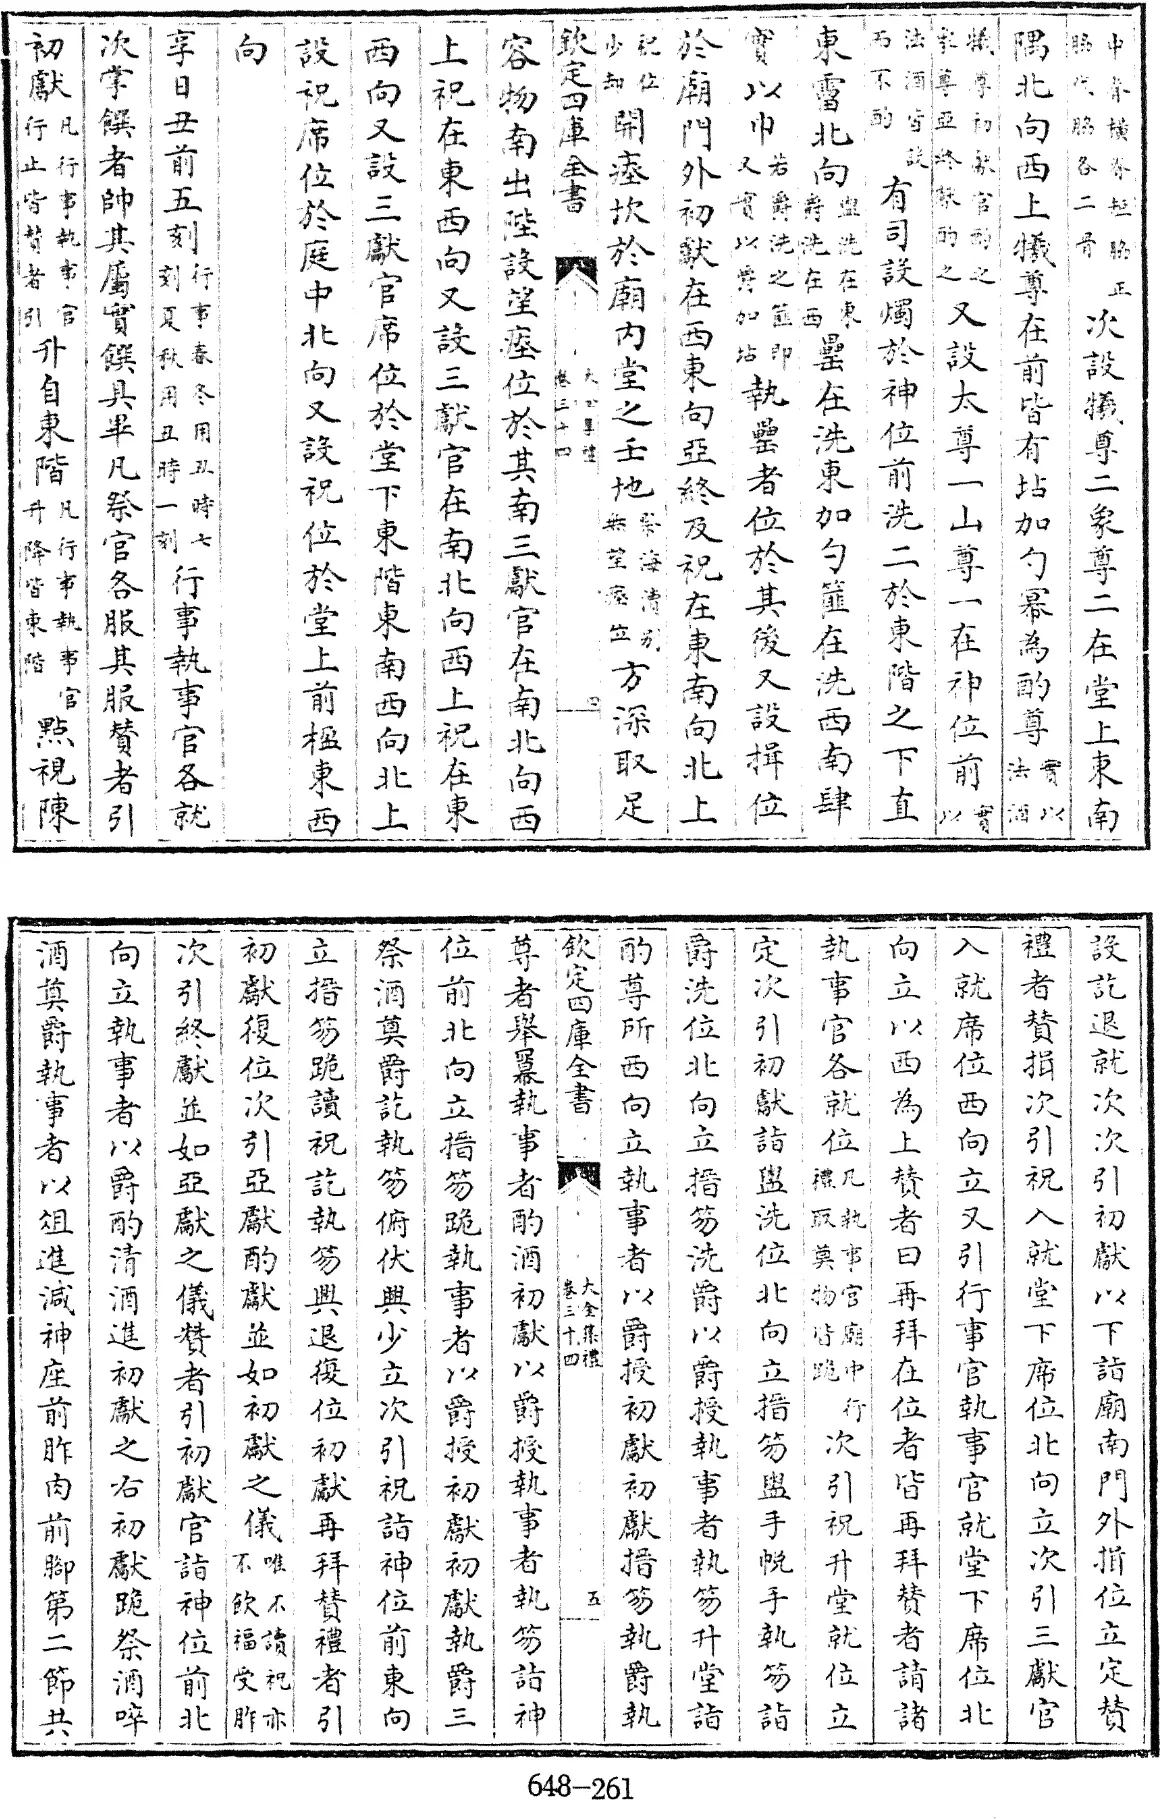 中脊横脊短脇正脇代脇各二骨次設犧尊二象尊二在堂上東南
隅北向西上犧尊在前皆有坫加勺幂為酌尊實以法酒
犧尊初獻官酌之象尊亞終獻酌之又設太尊一山尊一在神位前實以
法酒皆設而不酌有司設燭於神位前洗二於東階之下直
東霤北向盥洗在東爵洗在西罍在洗東加勺篚在洗西南肆
實以巾若爵洗之篚即又實以爵加坫執罍者位於其後又設揖位
於廟門外初獻在西東向亞終及祝在東南向北上
祝位少却開瘞坎於廟内堂之壬地祭海瀆則無望瘞位方深取足
欽定四庫全書
大金集禮
卷三十四
四
容物南出陛設望瘞位於其南三獻官在南北向西
上祝在東西向又設三獻官在南北向西上祝在東
西向又設三獻官席位於堂下東階東南西向北上
設祝席位於庭中北向又設祝位於堂上前楹東西
向
享日丑前五刻行事春冬用丑時七刻夏秋用丑時一刻行事執事官各就
次掌饌者帥其屬實饌具畢凡祭官各服其服贊者引
初獻凡行事執事官行止皆贊者引升自東階凡行事執事官升降皆東階點視陳
設訖退就次次引初獻以下詣廟南門外揖位立定贊
禮者贊揖次引祝入就堂下席位北向立次引三獻官
入就席位西向立又引行事官執事官就堂下席位北
向立以西為上贊者曰再拜在位者皆再拜贊者請諸
執事官各就位凡執事官廟中行禮取奠物皆跪次引祝升堂就位立
定次引初獻詣盥洗位北向立搢笏盥手帨手執笏詣
爵洗位北向立搢笏洗爵以爵授執事者執笏升堂詣
酌尊所西向立執事者以爵授初獻初獻搢笏執爵執
欽定四庫全書
大金集禮
卷三十四
五
尊者舉冪執事者酌酒初獻以爵授執事者執笏詣神
位前北向立搢笏跪執事者以爵授初獻初獻執爵三
祭酒奠爵訖執笏俯伏興少立次引祝詣神位前東向
立搢笏跪讀祝訖執笏興退復位初獻再拜贊禮者引
初獻復位次引亞獻酌獻並如初獻之儀唯不讀祝亦不飲福受胙
次引終獻並如亞獻之儀贊者引初獻官詣神位前北
向立執事者以爵酌清酒進初獻之右初獻跪祭酒啐
酒奠爵執事者以俎進減神座前胙肉前脚第二節共
648-261